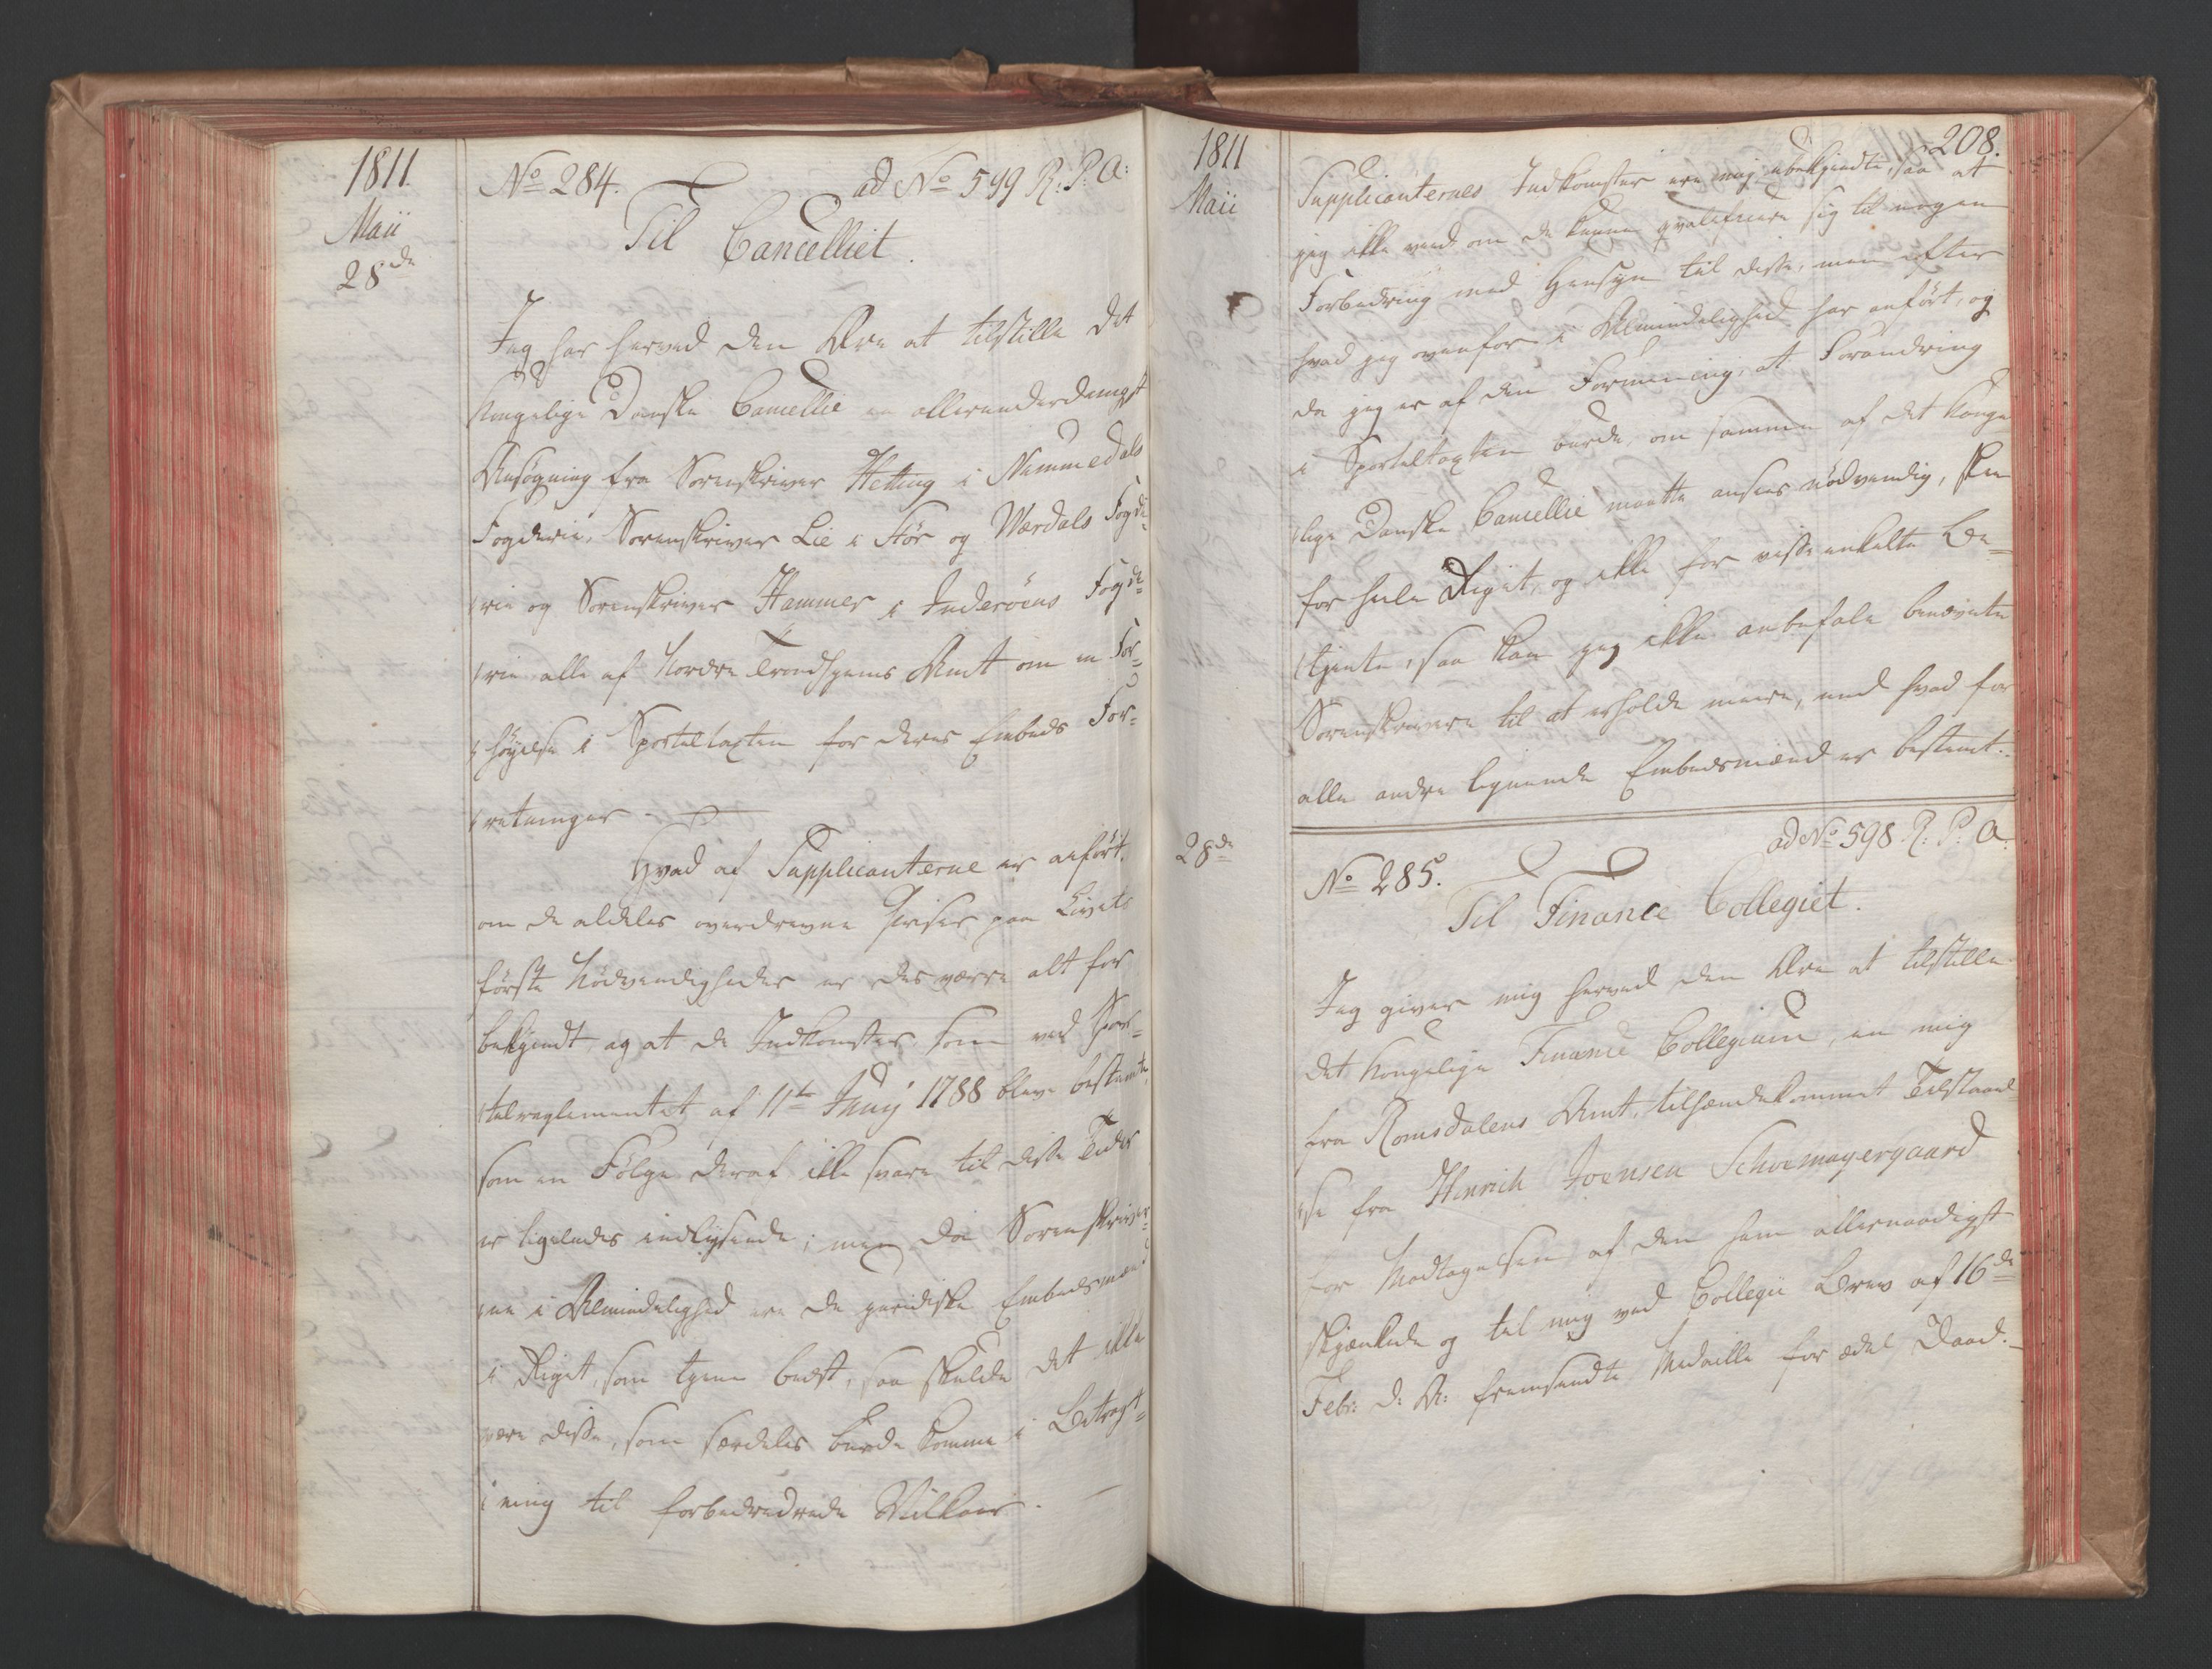 1811.
Maii
28de
No 284. ad No 599 R: P: A:
Til Cancelliet.
Jeg har herved den Ære at tilstille det
Kongelige Danske Cancellie en allerunderdanigst
Ansøgning fra Sorenskriver Hetting i Nummedals
Fogderie, Sorenskriver Lie i Stør og Værdals Fogde-
rie og Sorenskriver Hammer i Inderøens Fogde-
rie alle af Nordre Trondhjems Amt om en For-
høyelse i Sporteltaxten for deres Embeds For-
retninger. —
Hvad af Supplicanterne er anført,
om de aldeles overdrevne Priser paa Livets
første Nødvendigheder er desværre alt for
bekjendt, og at de Indkomster som ved Spor-
telreglementet af 11te Junij 1788 bleve bestemte,
som en Følge deraf ikke svare til disse Tider
er ligeledes indlysende; men da Sorenskriver-
ne i Almindelighed ere de juridiske Embedsmænd
i Riget, som tjene bedst, saa skulde det ikke
være disse, som særdeles burde komme i Betragt-
ning til forbedredrede Vilkaar. —
1811
Maii
208.
Supplicanternes Indkomster ere mig ubekjendte, saa at
jeg ikke veed om de kunne qvalificere sig til nogen
Forbedring med Hensyn til disse, men efter
hvad jeg ovenfor i Almindelighed har anført, og
da jeg er af den Formening, at Forandring
i Sporteltaxten burde, om samme af det Konge-
lige Danske Cancellie maatte ansees nödvendig, skee
for hele Riget, og ikke for visse enkelte Be-
tjente, saa kan jeg ikke anbefale benævnte
Sorenskrivere til at erholde meere, end hvad for
alle andre lignende Embedsmænd er bestemt.
28de
No 285. ad No 598 R: P: A:
Til Finance Collegiet.
Jeg giver mig herved den Ære at tilstille
det Kongelige Finance Collegium, en mig
fra Romsdalens Amt, tilhændekommet Tilstaael-
se fra Hinrich Joensen Schoemagergaard
for Modtagelsen af den ham allernaadigst
skjænkede og til mig ved Collegii Brev af 16de
Febr: d: A: fremsendte Medaille for ædel Daad. —